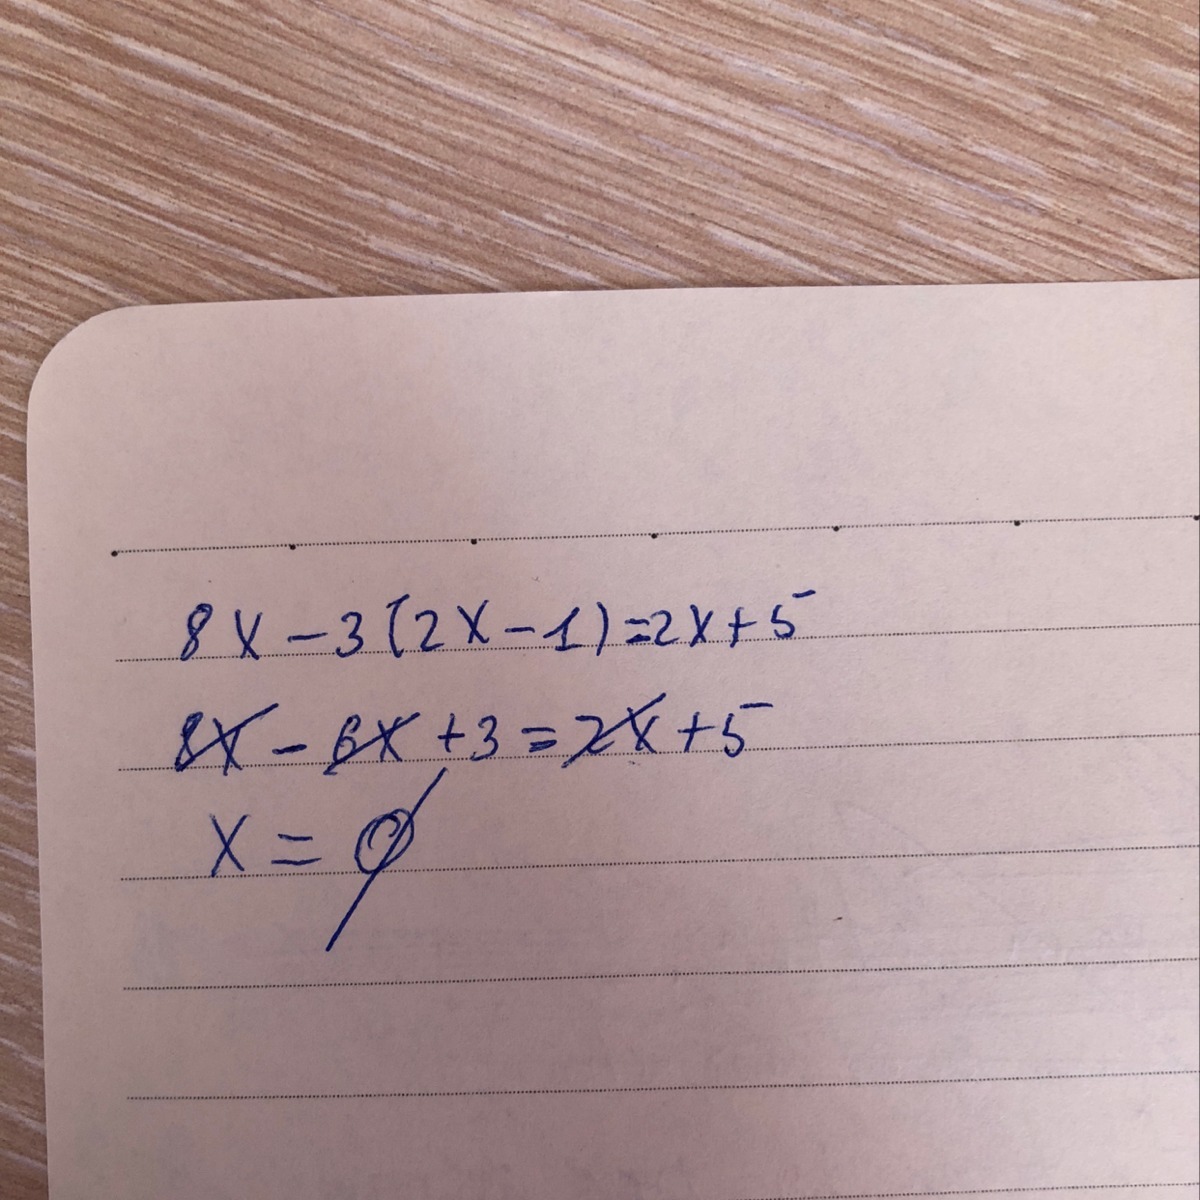 8x - 3(2x - 1) = 2x + 5
8x - 6x + 3 = 2x + 5
x = ∅